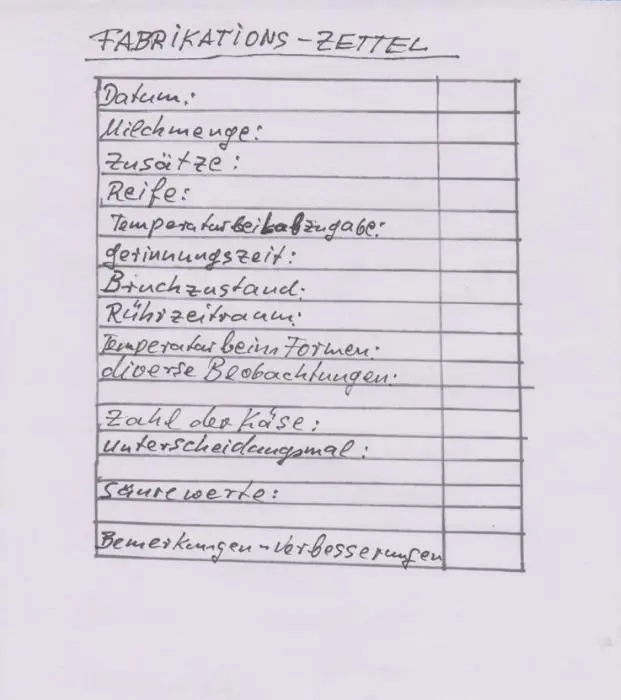 FABRIKATIONS-ZETTEL
Datum:
Milchmenge:
Zusätze:
Reife:
Temperatur bei Labzugabe:
Gerinnungszeit:
Bruchzustand:
Rührzeitraum:
Temperatur beim Formen:
diverse Beobachtungen:
Zahl der Käse:
Unterscheidungsmal:
Säurewerte:
Bemerkungen-Verbesserungen